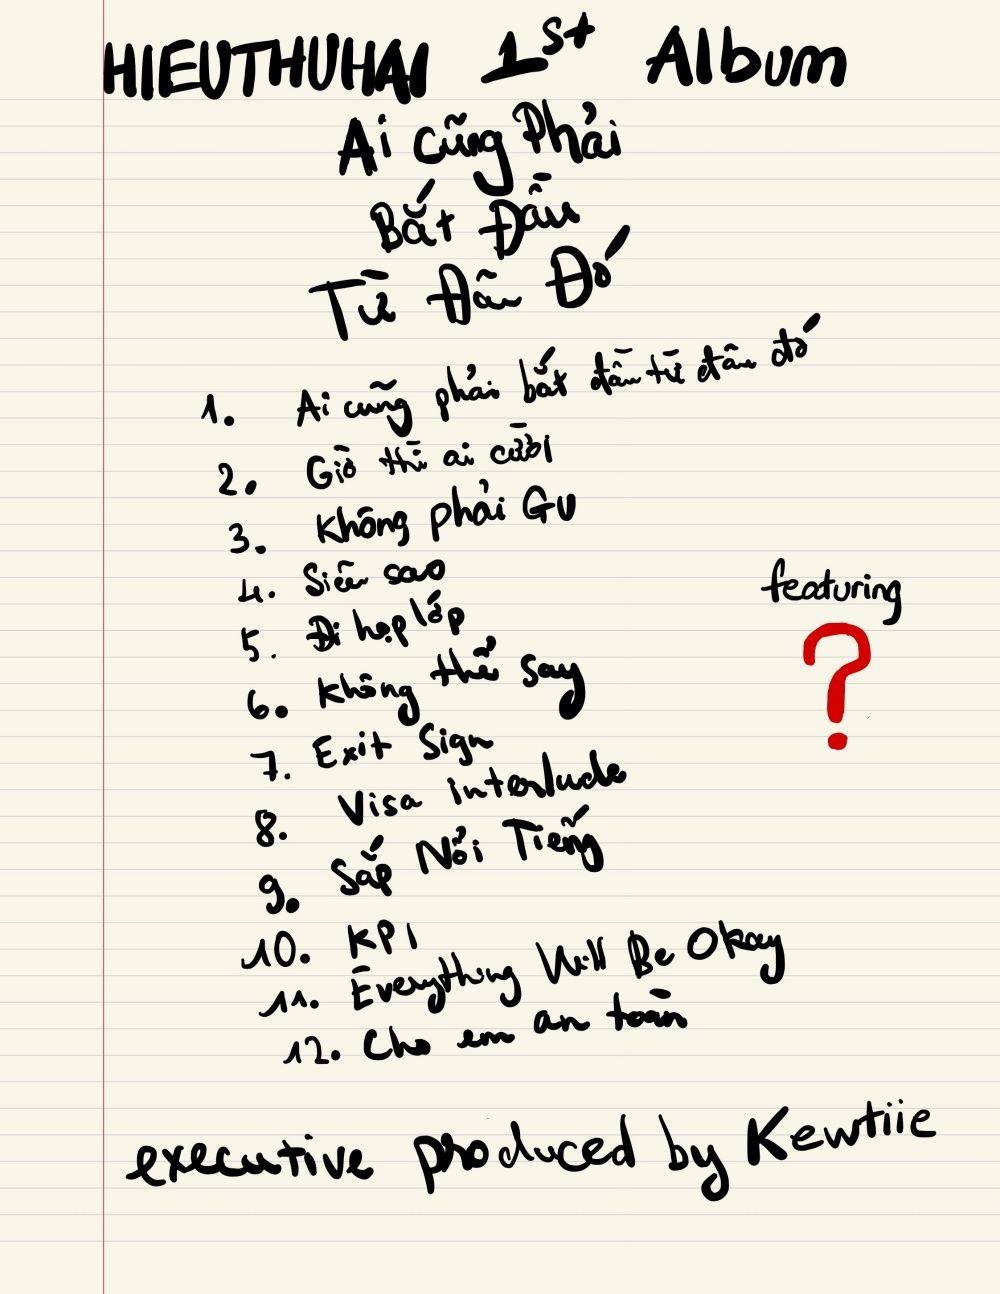 HIEUTHUHAI 1st Album
Ai cũng Phải
Bắt Đầu
Từ Đâu Đó
1. Ai cũng phải bắt đầu từ đâu đó
2. Giờ thì ai cười
3. Không phải Gu
4. Siêu sao
5. Đi họp lớp
featuring
?
6. Không thể say
7. Exit Sign
8. Visa interlude
9. Sắp Nổi Tiếng
10. KPI
11. Everything Will Be Okay
12. Cho em an toàn
executive produced by Kewtiie